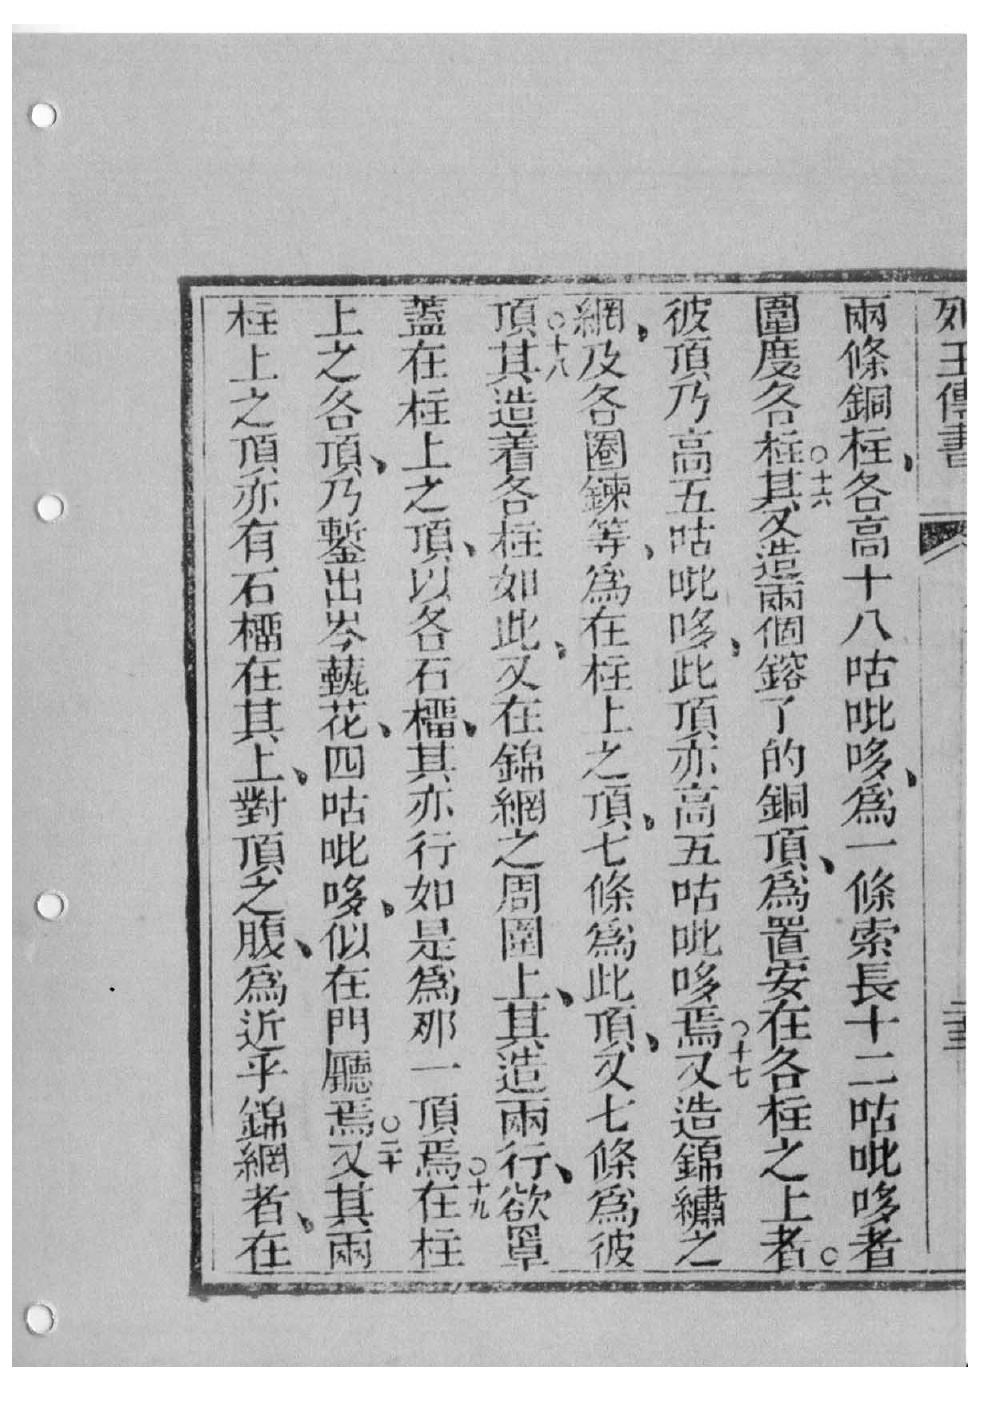 列王傳書
二三
兩條銅柱、各高十八咕吡哆、爲一條索長十二咕吡哆者
圍度各柱○十六其又造兩個鎔了的銅頂、爲置安在各柱之上者○
彼頂乃高五咕吡哆、此頂亦高五咕吡哆焉○十七又造錦繡之
網、及各圈鍊等、爲在柱上之頂、七條爲此頂、又七條爲彼
頂○十八其造着各柱如此、又在錦網之周圍上、其造兩行、欲罩
蓋在柱上之頂、以各石橊、其亦行如是爲那一頂焉○十九在柱
上之各頂、乃鏨出岑藝花、四咕吡哆、似在門廳焉○二十又其兩
柱上之頂亦有石橊在其上、對頂之腹、爲近乎錦網者、在